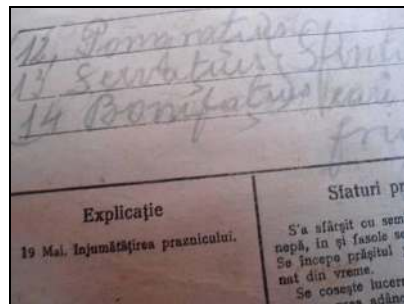 12, Pancratius
13 Servatius, Sfinti
14 Bonifatius cari
Explicație
19 Mai. Injumătățirea praznicului.
Sfaturi
S'a sfârșit cu
nepă, in și fasole
Se începe prășitul
nat din vreme.
Se cosește